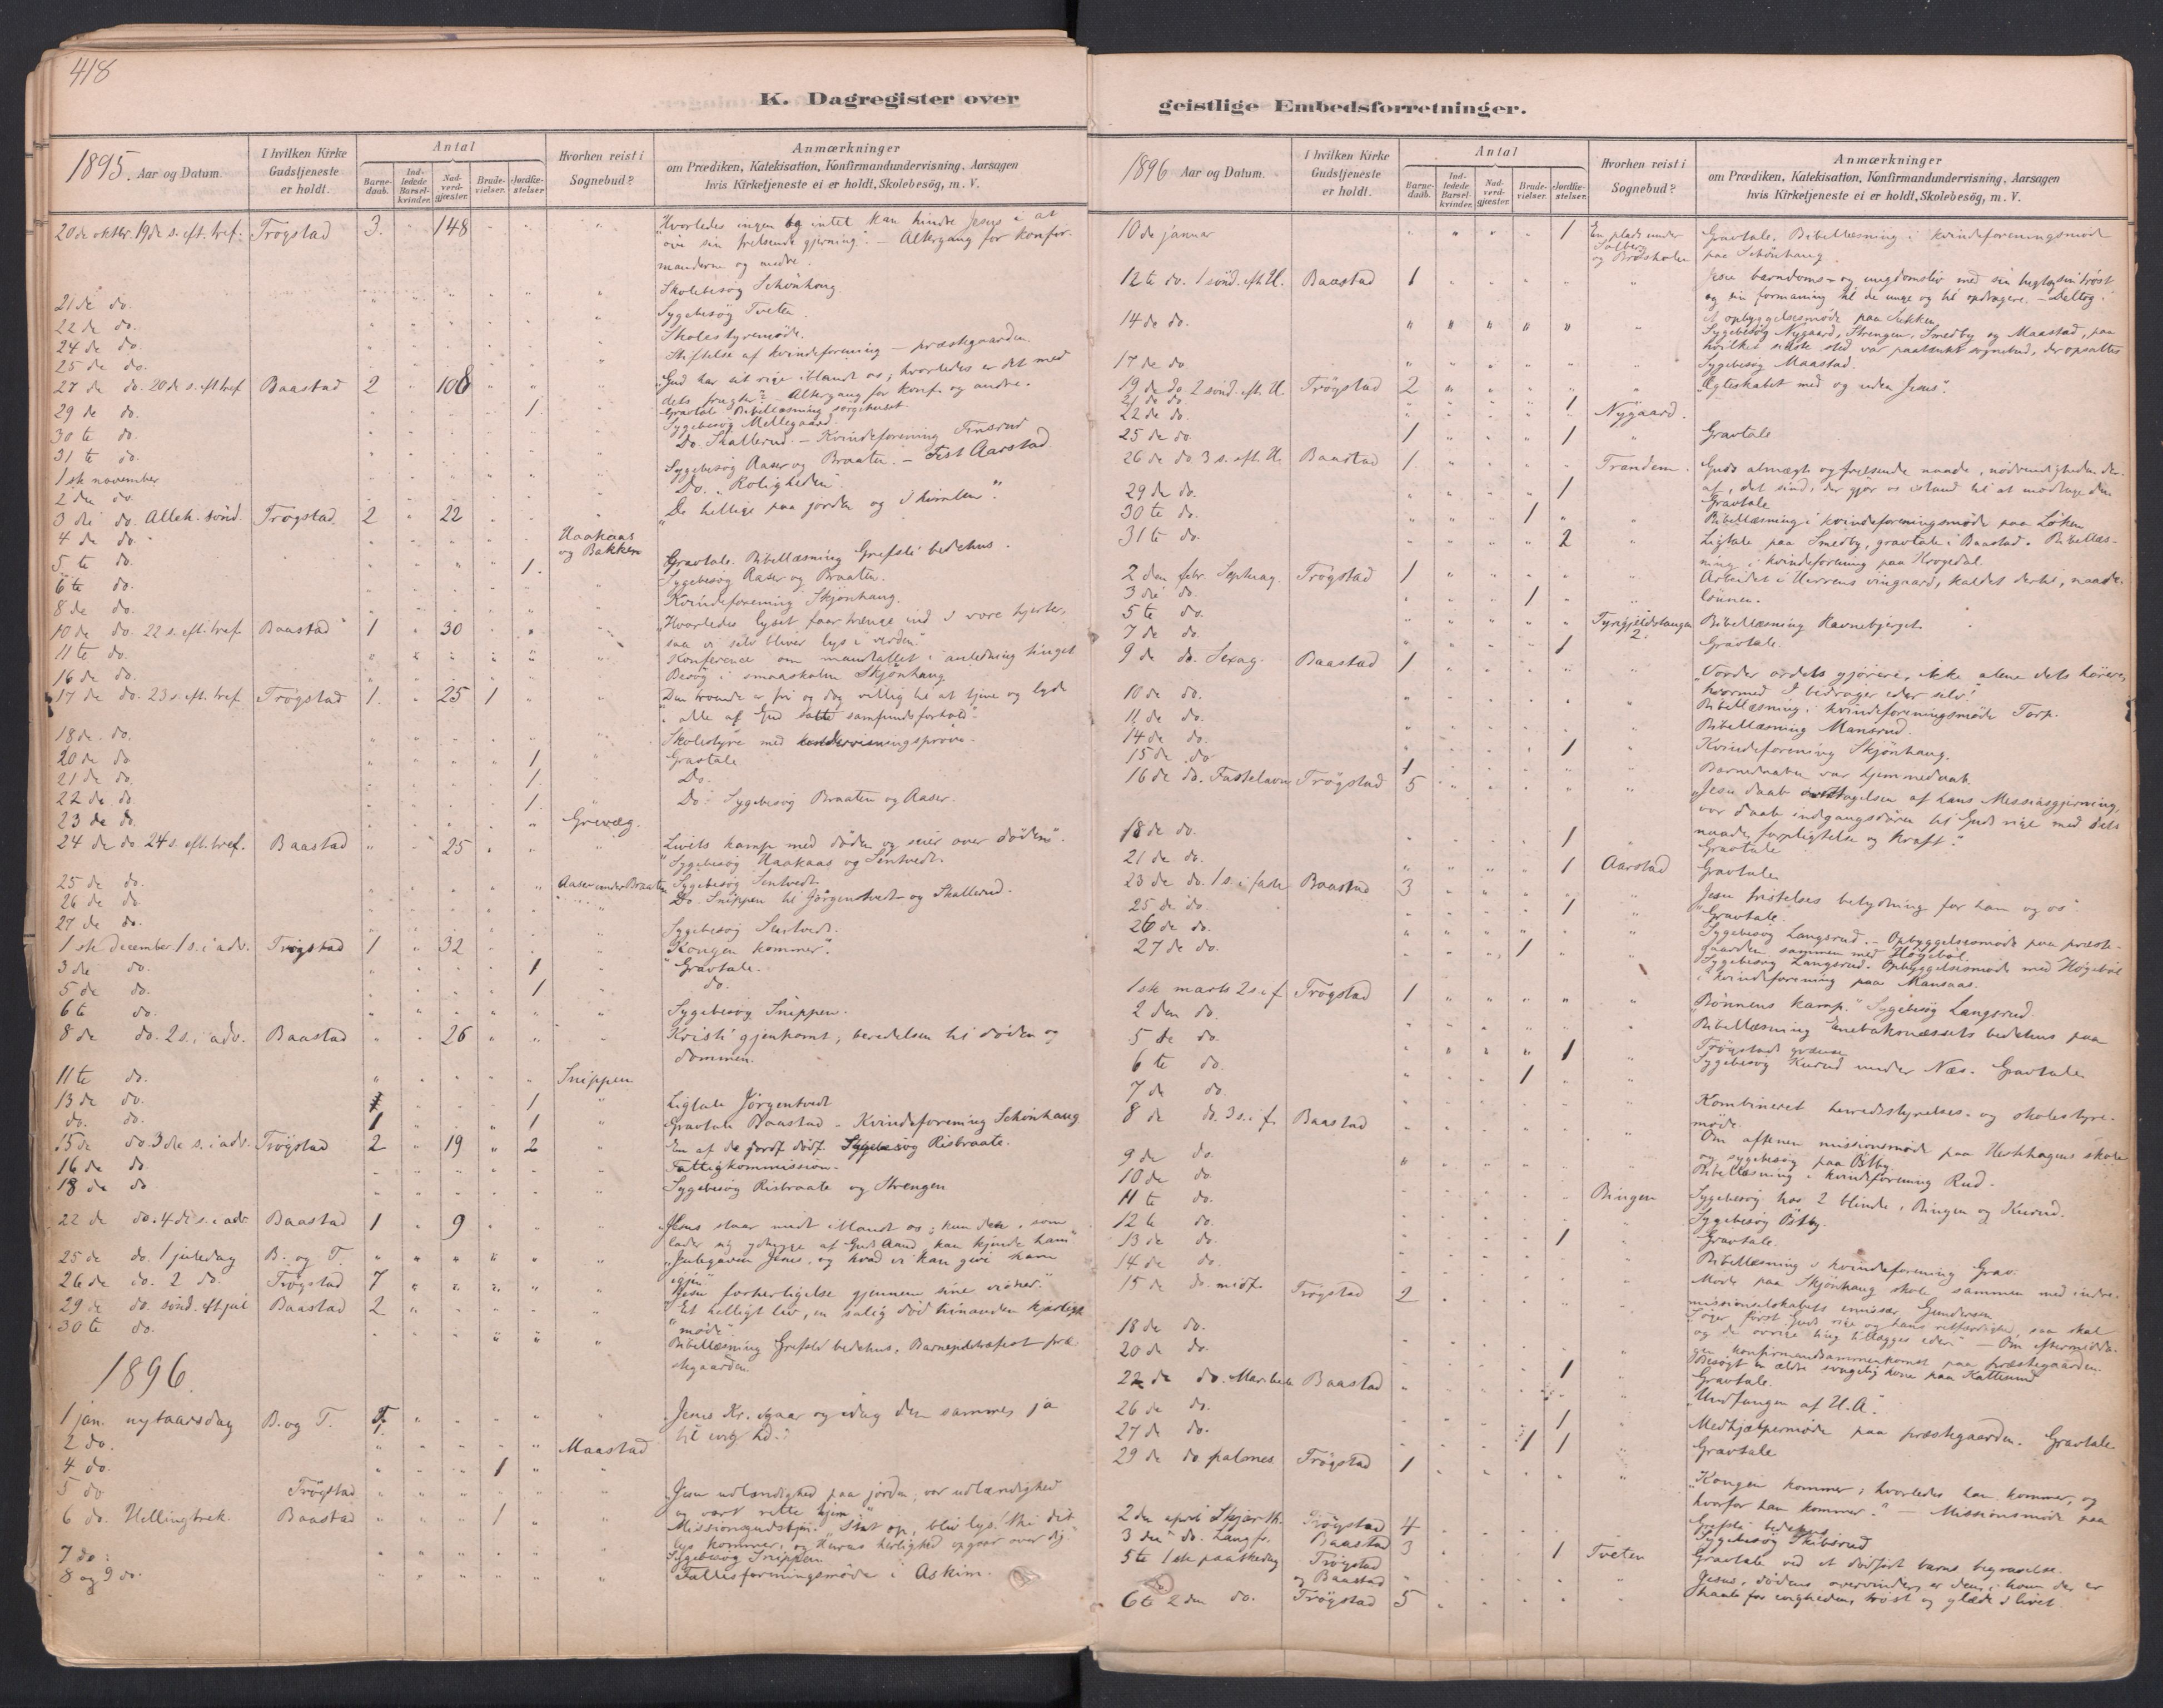 418
K. Dagregister over
1895. Aar og Datum.
I hvilken Kirke Gudstjeneste er holdt.
Antal
Barnedaab.
Indledede Barselkvinder.
Nadverdgjæster.
Brudevielser.
Jordfæstelser
Hvorhen reist i Sognebud?
Anmærkninger
om Prædiken, Katekisation, Konfirmandundervisning, Aarsagen
hvis Kirketjeneste ei er holdt, Skolebesøg, m. V.
20de oktbr. 19de s. eft. tref. Trøgstad 3. " 148 " " " "Hvorledes ingen og intet kan hindre Jesus i at
øve sin frelsende gjerning". - Altergang for konfir-
manderne og andre.
21de do. Skolebesøg Schönhaug
22de do. Sygebesøg Tveten.
24de do. Skolestyremøde.
25de do. Stiftelse af kvindeforening - præstegaarden.
27de do. 20de s. eft. tref Baastad 2 " 108 " " " "Gud har sit rige iblandt os; hvorledes er det med
dets frugter?" - Altergang for konf. og andre.
29de do. 1. Gravtale Bibellæsning sørgehuset
30te do. Sygebesøg Mellegaard.
31te do. Do. Skallerud. - Kvindeforening Finsrud
1ste november Sygebesøg Aaser og Braaten. - Fest Aarstad
2den do. Do. "Roligheden.
3die do. Alleh. sönd. Trøgstad 2 " 22 " " " "De hellige paa jorden og i himlen".
4de do. Haakaas og Bakken
5te do. 1. Gravtale. Bibellæsning Grefsli bedehus.
6te do. Sygebesøg Aaser og Braaten.
8de do. Kvindeforening Skjønhaug.
10de do. 22 s. eft. tref. Baastad 1 " 30 " " " "Hvorledes lyset faar trænge ind i vore hjerter,
saa vi selv bliver lys i verden"
11te do. Konference om mandtallet i anledning tinget
16de do. Besøg i smaaskolen Skjønhaug
17de do. 23 s. eft. tref Trøgstad 1. " 25 1 " " Den troende er fri og dog villig til at tjene og lyde
i alle af Gud satte samfundsforhold".
18de do. Skolestyre med undervisningsprøve.
20de do. 1. Gravtale
21de do. 1. Do.
22de do. 1. Do. Sygebesøg Braaten og Aaser.
23de do. Grevæg.
24de do 24 s. eft. tref. Baastad " " 25 " " " Livets kamp med døden og seier over døden".
Sygebesøg Haakaas og Sentvedt.
25de do. Aaser under Braaten Sygebesøg Sentvedt.
26de do. Do. Snippen til Jørgentvedt og Skallerud.
27de do. Sygebesøg Sentvedt.
1ste december 1 s. i adv. Trøgstad 1 " 32 " " " "Kongen kommer".
3die do. 1 Gravtale.
5de do. 1 do.
6te do. Sygebesøg Snippen.
8de do. 2 s. i adv. Baastad " " 26 " " " Kristi gjenkomst; beredelsen til døden og
dommen.
11te do. Snippen
13de do. 1 Ligtale Jørgentvedt
do. do. 1 1 Gravtale Baastad - Kvindeforening Schönhaug
15de do. 3die s. i adv. Trøgstad 2 " 19 " 2 " En af de jordf. dödf. Sygebesøg Risbraate.
16de do Fattigkommission.
18de do Sygebesøg Risbraate og Strengen
22de do. 4de s. i adv Baastad 1 " 9 " " " "Jesus staar midt iblandt os; kun den, som
lader sig opbygge af Guds Aand, kan kjende ham"
25de do. 1 juledag B. og T. "Julegaven Jesus, og hvad vi kan give ham
igjen"
26de do. 2 do. Trøgstad 7 Jesu forherligelse gjennem sine vidner."
29de do. sønd. eft. jul Baastad 2 "Et helligt liv, en salig död hinanden kjærligt
møde"
30te do. Bibellæsning Grefsli bedehus. Barnejuletræfest præ-
stegaarden.
1896.
1 jan. nytaarsdag B. og T. Jesus Kr. igaar og idag den samme, ja
til evig tid."
2 do. Maastad
4 do. 1
5 do Trøgstad "Jesu udlændighed paa jorden, vor udlændighed
og vort rette hjem"
6 do. Helligtrek. Baastad 1 Missionsgudstjen. "Staa op, bliv lys! thi dit
lys kommer, og Herrens herlighed opgaar over dig
7 do. Sygebesøg Snippen
8 og 9 do. Fællesforeningsmøde i Askim.
geistlige Embedsforretninger.
1896 Aar og Datum.
I hvilken Kirke Gudstjeneste er holdt.
Antal
Barnedaab.
Indledede Barselkvinder.
Nadverdgjæster.
Brudevielser.
Jordfæstelser.
Hvorhen reist i Sognebud?
Anmærkninger
om Prædiken, Katekisation, Konfirmandundervisning, Aarsagen
hvis Kirketjeneste ei er holdt, Skolebesøg, m. V.
10de januar 1 En plads under Solberg og Brødsholen Gravtale. Bibellæsning i kvindeforeningsmøde
paa Schönhaug.
12te do. 1 sönd. eft. H. Baastad 1 Jesu barndoms- og ungdomsliv med sin trøst
og sin formaning til de unge og til opdragere. - Deltog i
et opbyggelsesmøde paa
14de do. Sygebesøg Nygaard, Strengen, Smedby og Maastad, paa
hvilket sidste sted var paatænkt sognebud, der opsattes
17de do Sygebesøg Maastad.
19de do. 2 sönd. eft. H. Trøgstad 2 "Ægteskabet med og uden Jesus".
21 de do. 1
22de do. Nygaard.
25de do. 1 1 Gravtale
26de do. 3 s. eft. H. Baastad 1. Trandem. Guds almægt og frelsende naade, nødvendigheden der-
af, det sind, der gjør os istand til at modtage den
29de do. 1 Gravtale
30te do. 1 Bibellæsning i kvindeforeningsmøde paa Løken
31te do. 2 Ligtale paa Smedby, gravtale i Baastad. Bibellæs-
ning i kvindeforening paa
2den febr. Septuag. Trøgstad 1 Arbeidet i Herrens vingaard, kaldet dertil, naade-
lønnen.
3die do. 1
5te do. Bibellæsning Ravnebjerget.
7de do. 1 Gravtale.
9de do. Sexag. Baastad 1 "Vorder ordets gjørere, ikke alene dets hørere,
hvormed I bedrager eder selv!"
10de do. Bibellæsning i kvindeforeningsmøde Torp.
11de do. Bibellæsning Mansrud.
14de do. 1 Kvindeforening Skjønhaug.
15de do 1 Barnedaaben var hjemmedaab.
16de do. Fastelavn Trøgstad 5 "Jesu daab af hans Messiasgjerning,
vor daab indgangsdøren til Guds rige med dets
naade, forpligtelse og kraft".
18de do. 1 Gravtale
21de do. 1 Aarstad Gravtale
23de do. 1 s. i faste Baastad 3 Jesu fristelses betydning for ham og os".
25de do. 1 Gravtale.
26de do. Sygebesøg Langsrud. - Opbyggelsesmøde paa præste-
gaarden sammen med Høgebøl.
27de do. 1 Sygebesøg Langsrud. Opbyggelsesmøde med Høgebøl
i kvindeforening paa Mansaas.
1ste marts 2 s. i f. Trøgstad 1 "Bönnens kamp." Sygebesøg Langsrud.
2den do. Bibellæsning Enebaknæssets bedehus paa
Trøgstads grænse
5te do. 1 Sygebesøg Kurud under Næs. Gravtale
6te do. 1
7de do Kombineret herredsstyrelses- og skolestyre-
møde.
8de do. 3 s. i f. Baastad Om aftenen missionsmøde paa Hesthagens skole
og sygebesøg paa Østby
9de do. Bibellæsning i kvindeforening Rud.
10de do Bingen Sygebesøg hos 2 blinde, Bingen og Kurud.
11te do. Sygebesøg Østby.
12te do. 1 Gravtale.
13de do.
14de do. Bibellæsning i kvindeforening Grav.
15de do. midf. Trøgstad 2 Møde paa Skjønhaug skole sammen med indre-
missionsselskabets emissær Gundersen
Søger först Guds rige og hans retfærdighed, saa skal
og de øvrige ting tillægges eder" - Om eftermidda-
gen konfirmandsammenkomst paa præstegaarden.
18de do. Besøgt en ældre svagelig kone paa Katterud
20de do. 1 Gravtale.
22de do. Maribeb Baastad "Undfangen af H. A."
26de do. 1 Medhjælpermøde paa præstegaarden. Gravtale
27de do. 1 1 Gravtale
29de do palmes. Trøgstad 1 "Kongen kommer; hvorledes han kommer, og
hvorfor han kommer." - Missionsmøde paa
Grefsli bedehus
2den april Skjærth. Trøgstad 4 Sygebesøg Skibsrud
3die do. Langfr. Baastad 3 1 Tveten Gravtale ved et dødfødt barns begravelse.
5te 1ste paaskedag Trøgstad og Baastad Jesus, dödens overvinder, er den, i hvem der er
haab for evigheden, trøst og glæde i livet
6te 2den do. Trøgstad 5